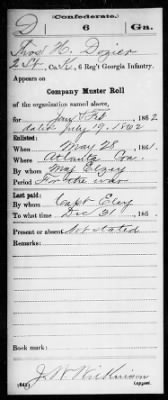 D
(Confederate.)
6 Ga.
Thos H. Dozier
2 St., Co. K, 6 Reg't Georgia Infantry.
Appears on
Company Muster Roll
of the organization named above,
for Jany & Feb, 1862
dated July 19, 1862
Enlisted:
When May 28, 1861.
Where Atlanta Ga.
By whom Maj Elzey
Period For the war
Last paid:
By whom Capt Eley
To what time Dec 31, 186
Present or absent Not stated
Remarks:
Book mark:
J. W. Wilkinson
(642) Copyist.